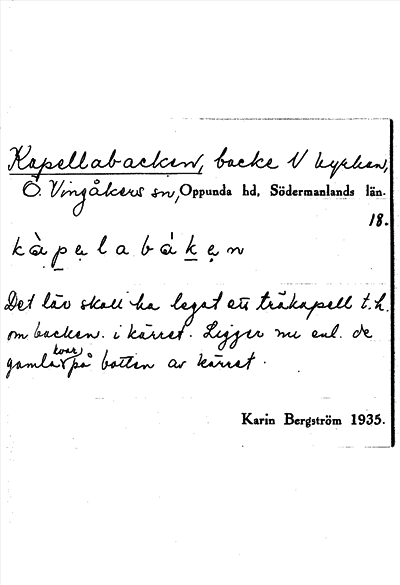 Kapellabacken, backe V kyrkan,
Ö. Vingåkers sn, Oppunda hd, Södermanlands län.
18.
kàpẹlabákẹn
Det lär skall ha legat ett träkapell t.h.
om backen i kärret. Ligger nu enl. de
gamla kvar på botten av kärret.
Karin Bergström 1935.